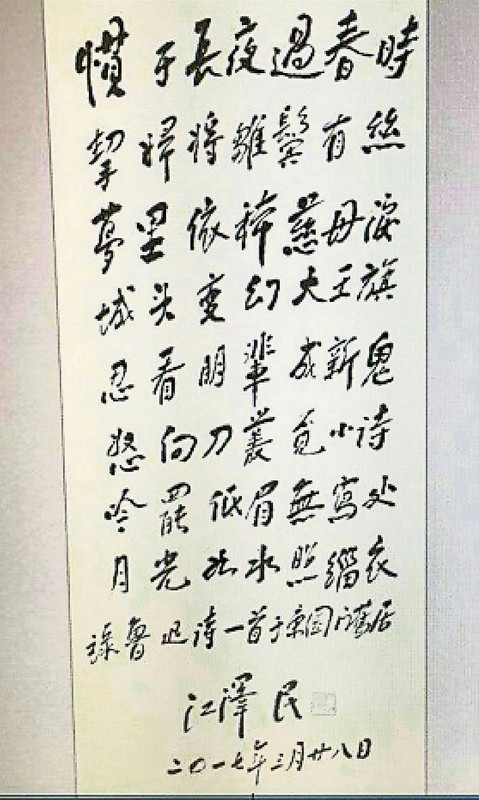 慣于長夜過春時
挈婦將雛鬢有絲
夢里依稀慈母淚
城头变幻大王旗
忍看朋輩成新鬼
怒向刀叢覓小诗
吟罷低眉無寫处
月光如水照緇衣
錄魯迅诗一首于東圈门舊居
江澤民
二〇一七年三月廿八日